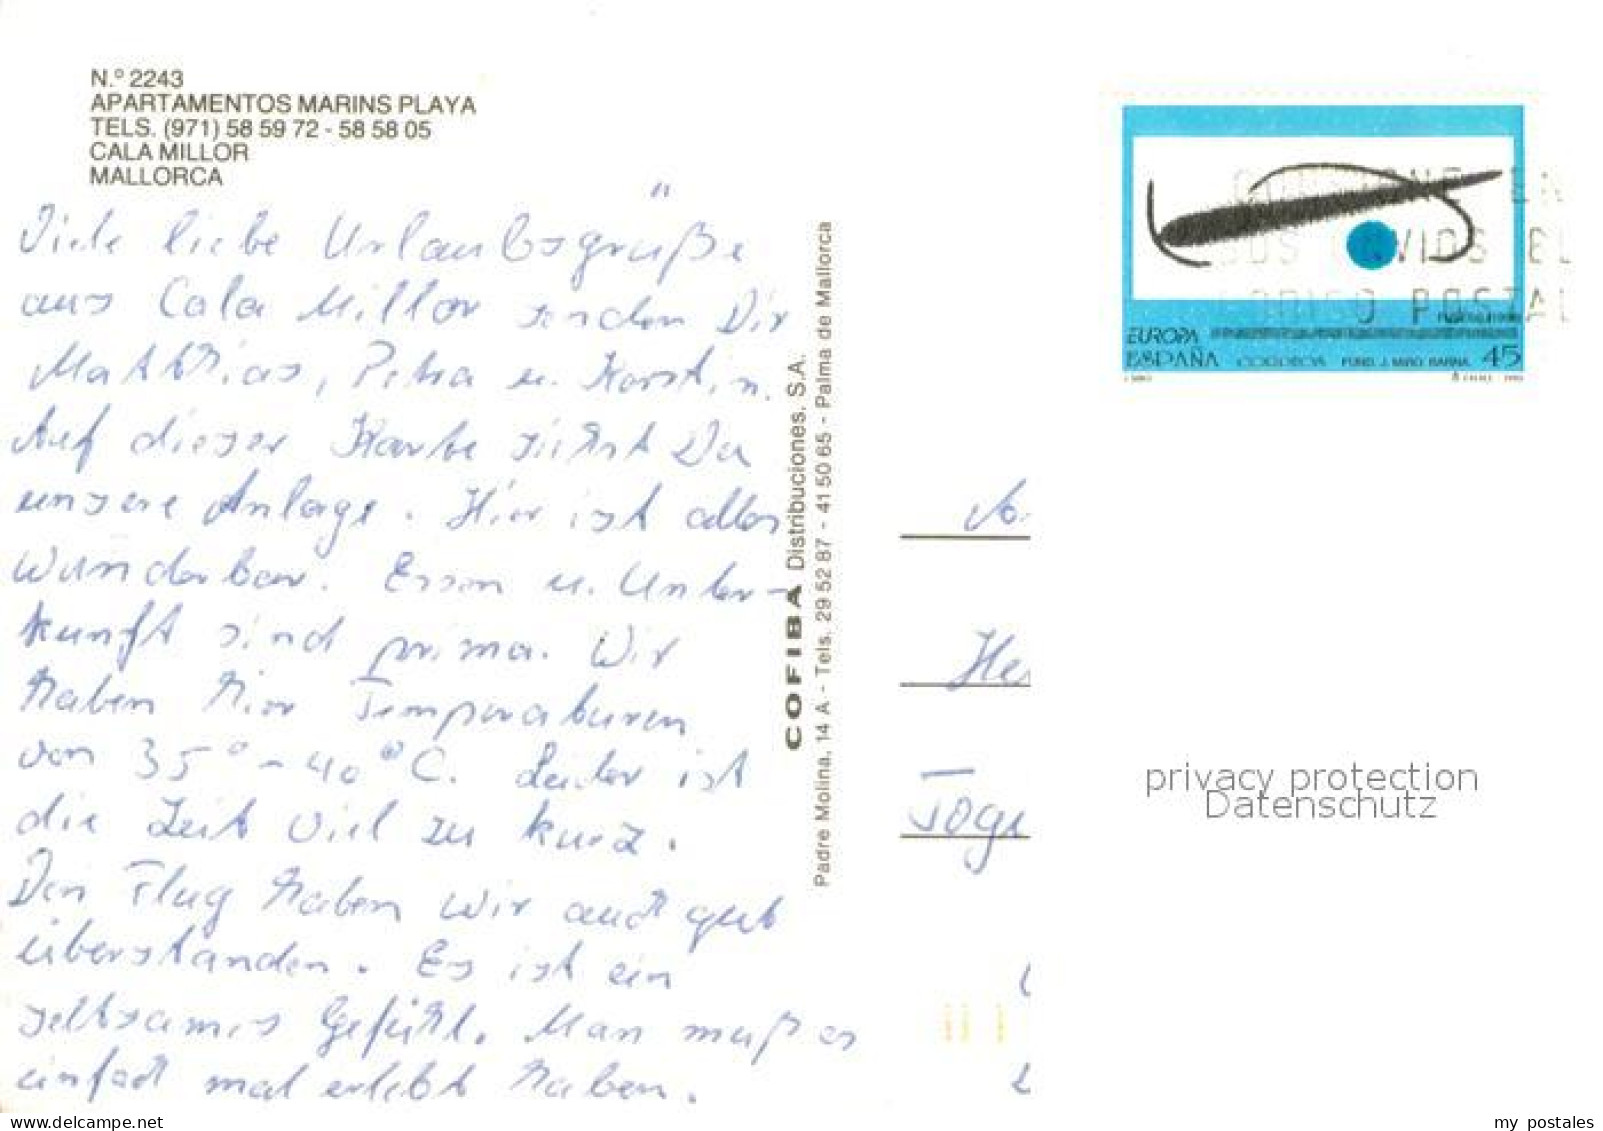 N.º 2243
APARTAMENTOS MARINS PLAYA
TELS. (971) 58 59 72 - 58 58 05
CALA MILLOR
MALLORCA
Viele liebe Urlaubsgrüße
aus Cala Millor senden Dir
Matthias, Petra u. Kerstin.
Auf dieser Karte siehst Du
unsere Anlage. Hier ist alles
wunderbar. Essen u. Unter-
kunft sind prima. Wir
haben hier Temperaturen
von 35° - 40°C. Leider ist
die Zeit viel zu kurz.
Den Flug haben wir auch gut
überstanden. Es ist ein
seltsames Gefühl. Man muß es
einfach mal erlebt haben.
COFIBA Distribuciones, S.A.
Padre Molina, 14 A - Tels. 29 52 87 - 41 50 65 - Palma de Mallorca
EN
ENVIOS EL
CODIGO POSTAL
EUROPA
ESPAÑA CORREOS FUND. J. MIRO BARNA. 45
He
Töge
privacy protection
Datenschutz
my postales